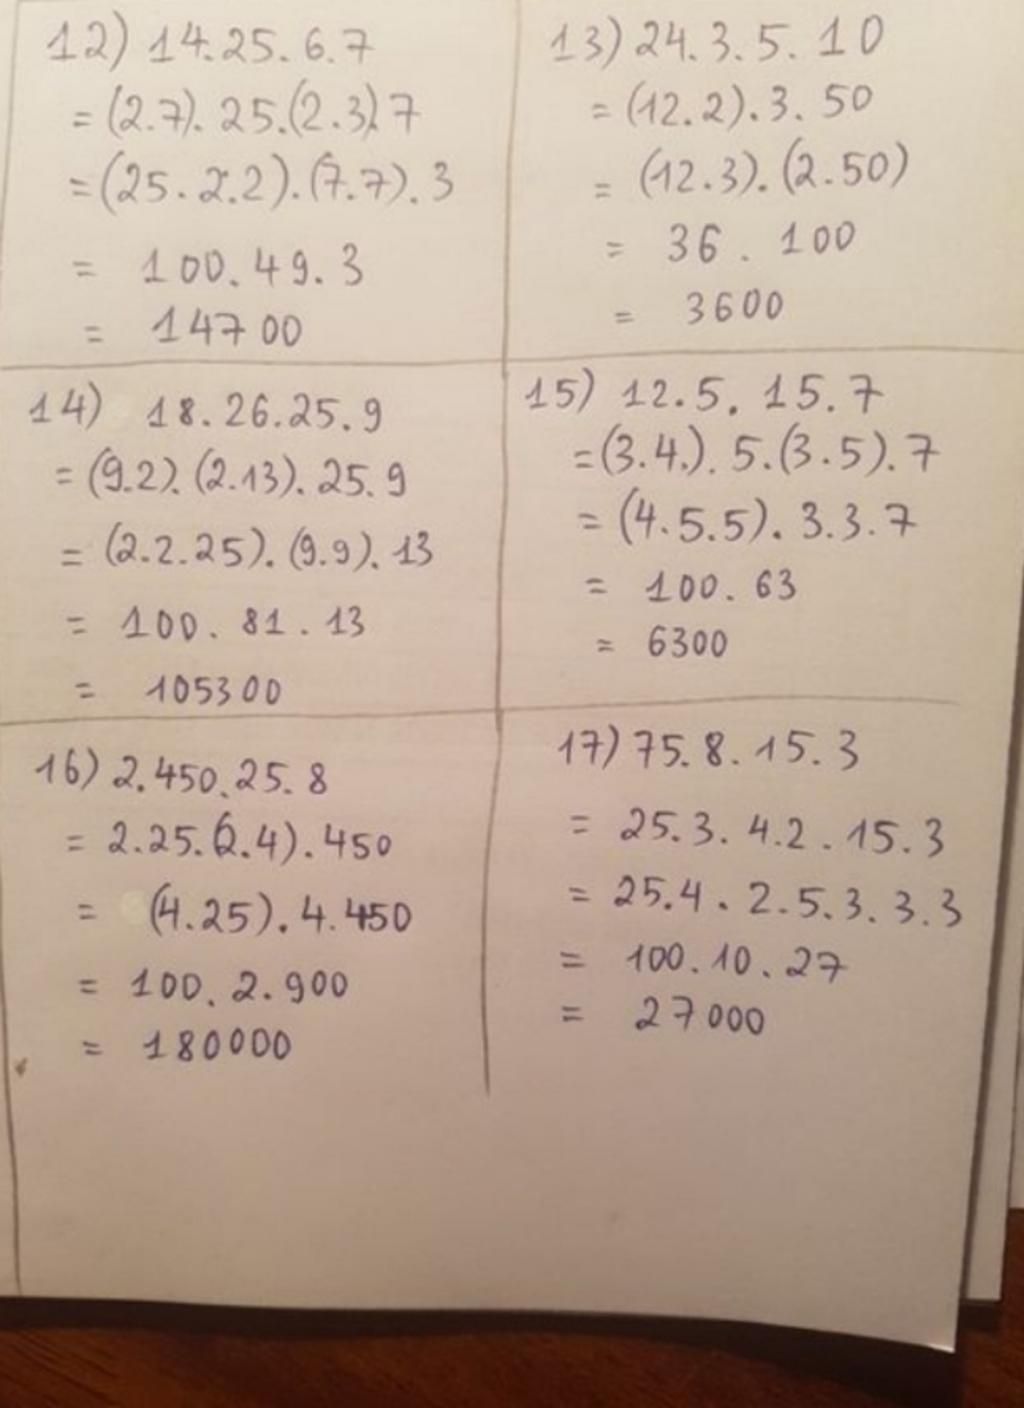 12) 14.25.6.7
= (2.7). 25.(2.3).7
= (25.2.2).(7.7).3
= 100.49.3
= 14700
13) 24.3.5.10
= (12.2).3.50
= (12.3).(2.50)
= 36 . 100
= 3600
14) 18.26.25.9
= (9.2).(2.13).25.9
= (2.2.25).(9.9).13
= 100.81.13
= 105300
15) 12.5.15.7
= (3.4.).5.(3.5).7
= (4.5.5).3.3.7
= 100.63
= 6300
16) 2.450.25.8
= 2.25.(2.4).450
= (4.25).4.450
= 100.2.900
= 180000
17) 75.8.15.3
= 25.3.4.2.15.3
= 25.4.2.5.3.3.3
= 100.10.27
= 27000